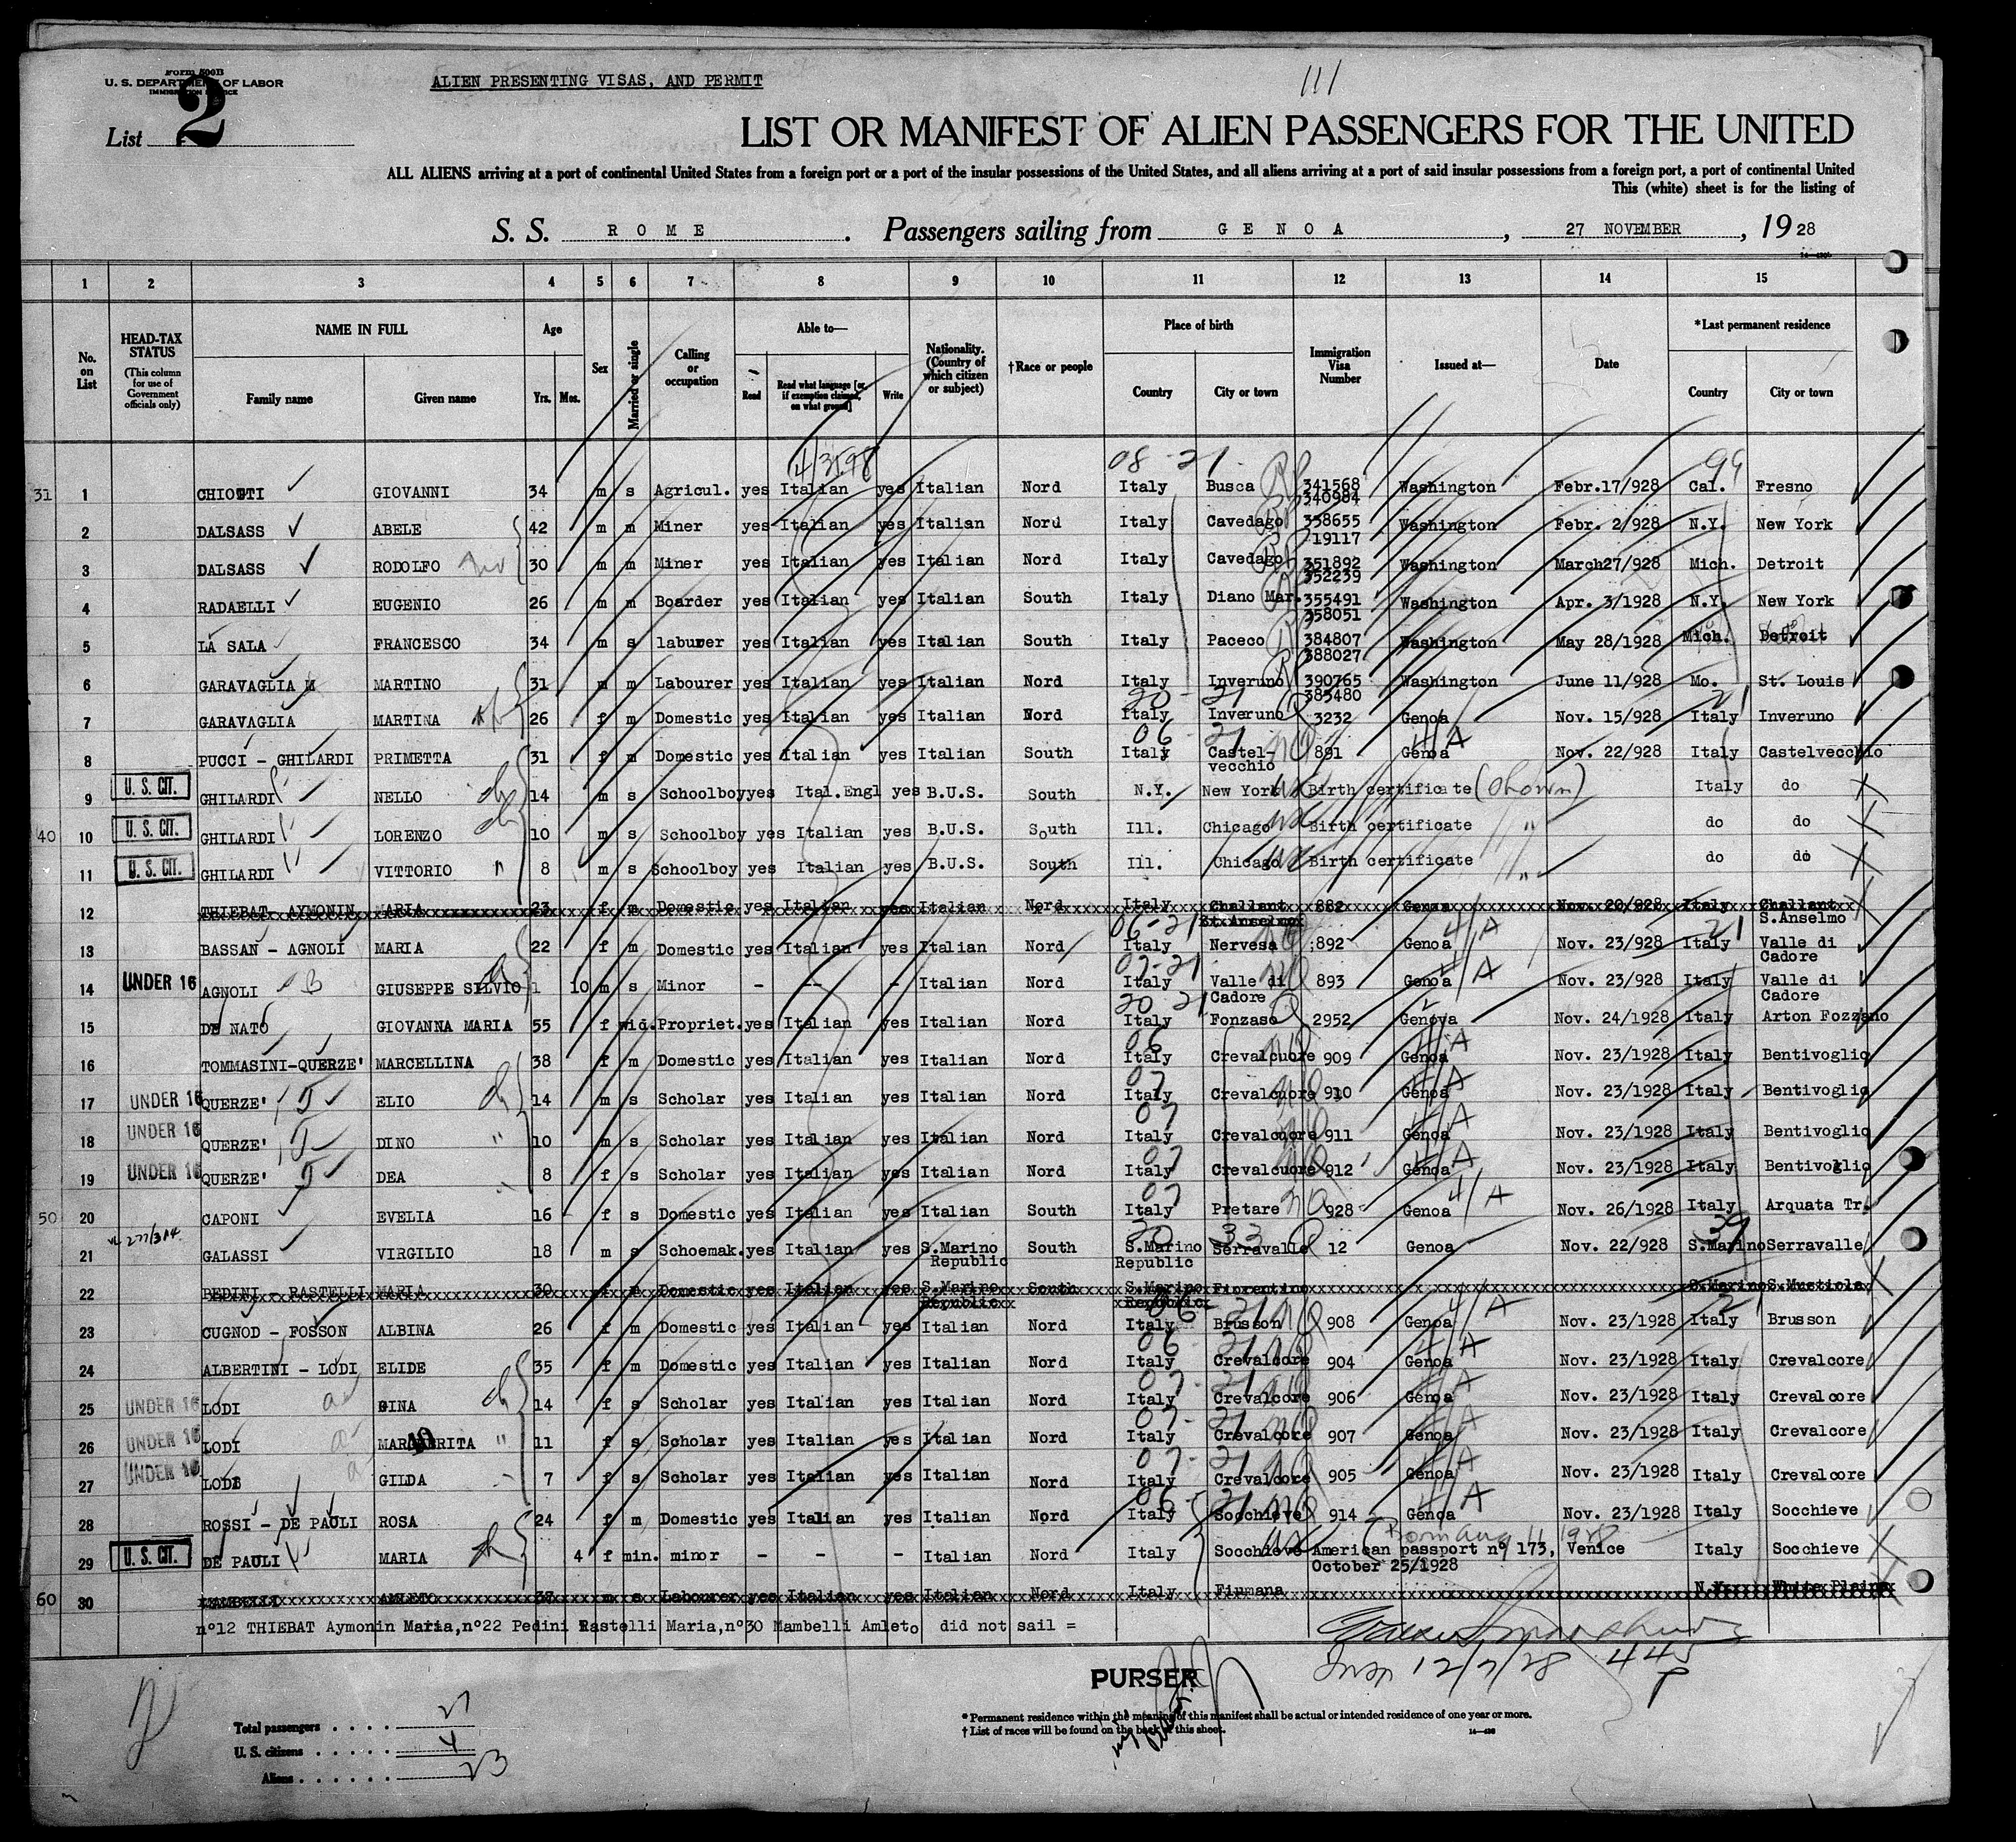 Form 500B
U. S. DEPARTMENT OF LABOR
IMMIGRATION SERVICE
ALIEN PRESENTING VISAS, AND PERMIT
111
List 2
LIST OR MANIFEST OF ALIEN PASSENGERS FOR THE UNITED
ALL ALIENS arriving at a port of continental United States from a foreign port or a port of the insular possessions of the United States, and all aliens arriving at a port of said insular possessions from a foreign port, a port of continental United
This (white) sheet is for the listing of
S. S. ROME. Passengers sailing from GENOA, 27 NOVEMBER, 1928
1 2 3 4 5 6 7 8 9 10 11 12 13 14 15
No. on List
HEAD-TAX STATUS (This column for use of Government officials only)
NAME IN FULL Family name Given name
Age Yrs. Mos.
Sex
Married or single
Calling or occupation
Able to— Read Read what language [or, if exemption claimed, on what ground] Write
Nationality. (Country of which citizen or subject)
†Race or people
Place of birth Country City or town
Immigration Visa Number
Issued at—
Date
*Last permanent residence Country City or town
4/3598 08-21 99
31 1 CHIOTTI GIOVANNI 34 m s Agricul. yes Italian yes Italian Nord Italy Busca 341568 340984 Washington Febr.17/928 Cal. Fresno
2 DALSASS ABELE 42 m m Miner yes Italian yes Italian Nord Italy Cavedago 358655 719117 Washington Febr. 2/928 N.Y. New York
3 DALSASS RODOLFO 30 m m Miner yes Italian yes Italian Nord Italy Cavedago 351892 352239 Washington March27/928 Mich. Detroit
4 RADAELLI EUGENIO 26 m m Boarder yes Italian yes Italian South Italy Diano Mar. 355491 358051 Washington Apr. 3/1928 N.Y. New York
5 LA SALA FRANCESCO 34 m s laburer yes Italian yes Italian South Italy Paceco 384807 388027 Washington May 28/1928 Mich. Detroit
6 GARAVAGLIA MARTINO 31 m m Labourer yes Italian yes Italian Nord Italy Inveruno 390765 385480 Washington June 11/928 Mo. St. Louis
20-21 21
7 GARAVAGLIA MARTINA 26 f m Domestic yes Italian yes Italian Nord Italy Inveruno 3232 Genoa Nov. 15/928 Italy Inveruno
06 21 NQ 4/A
8 PUCCI - GHILARDI PRIMETTA 31 f m Domestic yes Italian yes Italian South Italy Castel-vecchio 891 Genoa Nov. 22/928 Italy Castelvecchio
U. S. CIT. 9 GHILARDI NELLO ch 14 m s Schoolboy yes Ital.Engl yes B.U.S. South N.Y. New York Birth certificate (Shown) Italy do
40 U. S. CIT. 10 GHILARDI LORENZO ch 10 m s Schoolboy yes Italian yes B.U.S. South Ill. Chicago Birth certificate " do do
U. S. CIT. 11 GHILARDI VITTORIO " 8 m s Schoolboy yes Italian yes B.U.S. South Ill. Chicago Birth certificate " do do
12 THIEBAT AYMONIN MARIA 23 f m Domestic yes Italian yes Italian Nord Italy Challant St.Anselmo 882 Genoa Nov. 20/928 Italy Challant S.Anselmo
06-21 4/A 21
13 BASSAN - AGNOLI MARIA 22 f m Domestic yes Italian yes Italian Nord Italy Nervesa 892 Genoa Nov. 23/928 Italy Valle di Cadore
07-21 4/A
UNDER 16 14 AGNOLI GIUSEPPE SILVIO 1 10 m s Minor - -- - Italian Nord Italy Valle di Cadore 893 Genoa Nov. 23/928 Italy Valle di Cadore
20-21
15 DE NATO GIOVANNA MARIA 55 f wid. Propriet. yes Italian yes Italian Nord Italy Fonzaso 2952 Genova Nov. 24/1928 Italy Arton Fozzano
06 4/A
16 TOMMASINI-QUERZE' MARCELLINA 38 f m Domestic yes Italian yes Italian Nord Italy Crevalcuore 909 Genoa Nov. 23/1928 Italy Bentivoglio
07 4/A
UNDER 16 17 QUERZE' ELIO ch 14 m s Scholar yes Italian yes Italian Nord Italy Crevalcuore 910 Genoa Nov. 23/1928 Italy Bentivoglio
07 4/A
UNDER 16 18 QUERZE' DINO " 10 m s Scholar yes Italian yes Italian Nord Italy Crevalcuore 911 Genoa Nov. 23/1928 Italy Bentivoglio
07 4/A
UNDER 16 19 QUERZE' DEA " 8 f s Scholar yes Italian yes Italian Nord Italy Crevalcuore 912 Genoa Nov. 23/1928 Italy Bentivoglio
07 4/A
50 20 CAPONI EVELIA 16 f s Domestic yes Italian yes Italian South Italy Pretare NQ 928 Genoa Nov. 26/1928 Italy Arquata Tr.
20 33 39
21 GALASSI VIRGILIO 18 m s Schoemak. yes Italian yes S.Marino Republic South S.Marino Republic Serravalle 12 Genoa Nov. 22/928 S.Marino Serravalle
22 BEDINI - RASTELLI MARIA 30 f m Domestic yes Italian yes S.Marino Republic South S.Marino Republic Fiorentino S.Marino S.Mustiola
06-21 NQ 4/A 21
23 CUGNOD - FOSSON ALBINA 26 f m Domestic yes Italian yes Italian Nord Italy Brusson 908 Genoa Nov. 23/1928 Italy Brusson
06 21 NQ 4/A
24 ALBERTINI - LODI ELIDE 35 f m Domestic yes Italian yes Italian Nord Italy Crevalcore 904 Genoa Nov. 23/1928 Italy Crevalcore
07-21 NQ 4/A
UNDER 16 25 LODI GINA ch 14 f s Scholar yes Italian yes Italian Nord Italy Crevalcore 906 Genoa Nov. 23/1928 Italy Crevalcore
07-21 NQ 4/A
UNDER 16 26 LODI MARGHERITA " 11 f s Scholar yes Italian yes Italian Nord Italy Crevalcore 907 Genoa Nov. 23/1928 Italy Crevalcore
07-21 NQ 4/A
UNDER 16 27 LODI GILDA 7 f s Scholar yes Italian yes Italian Nord Italy Crevalcore 905 Genoa Nov. 23/1928 Italy Crevalcore
06-21 NQ 4/A
28 ROSSI - DE PAULI ROSA 24 f m Domestic yes Italian yes Italian Nord Italy Socchieve 914 Genoa Nov. 23/1928 Italy Socchieve
(Born Aug 11 1928
U. S. CIT. 29 DE PAULI MARIA ch 4 f min. minor - - - Italian Nord Italy Socchieve American passport nº 173, Venice October 25/1928 Italy Socchieve
60 30 MAMBELLI AMLETO 37 m s Labourer yes Italian yes Italian Nord Italy Fiumana N.Y. White Plains
nº12 THIEBAT Aymonin Maria,nº22 Pedini Rastelli Maria,nº30 Mambelli Amleto did not sail =
Insp 12/7/28 445
PURSER
Total passengers . . . . 27
U. S. citizens . . . . . 4
Aliens . . . . . . 23
* Permanent residence within the meaning of this manifest shall be actual or intended residence of one year or more.
† List of races will be found on the back of this sheet.